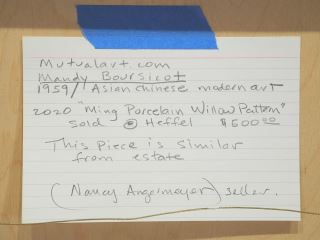 Mutualart.com
Mandy Boursicot
1959/ Asian chinese modern art
2020 "Ming Porcelain Willow Pattern"
Sold @ Heffel $500.00
This Piece is Similar
from estate
(Nancy Angermeyer) seller.